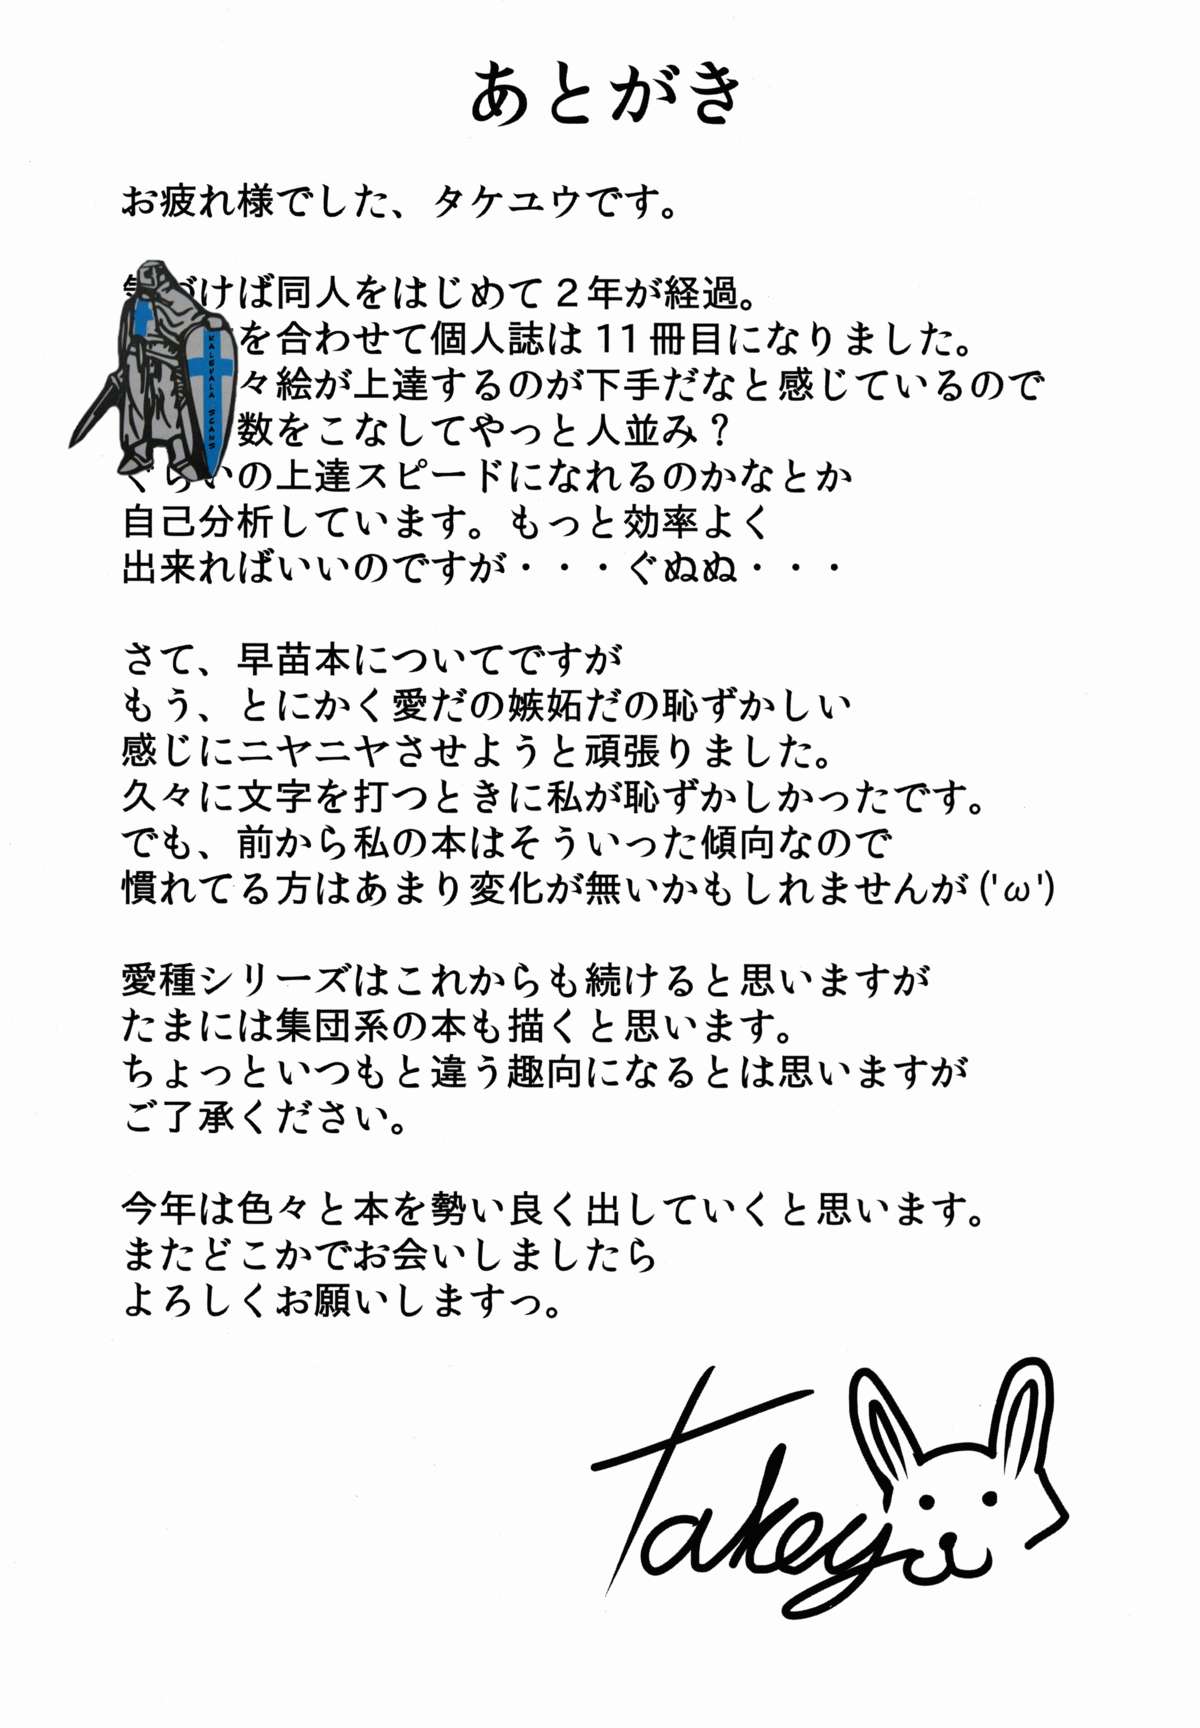 あとがき
お疲れ様でした、タケユウです。
づけば同人をはじめて2年が経過。
を合わせて個人誌は11冊目になりました。
々絵が上達するのが下手だなと感じているので
数をこなしてやっと人並み?
ぐらいの上達スピードになれるのかなとか
自己分析しています。もっと効率よく
出来ればいいのですが・・・ぐぬぬ・・・
さて、早苗本についてですが
もう、とにかく愛だの嫉妬だの恥ずかしい
感じにニヤニヤさせようと頑張りました。
久々に文字を打つときに私が恥ずかしかったです。
でも、前から私の本はそういった傾向なので
慣れてる方はあまり変化が無いかもしれませんが('ω')
愛種シリーズはこれからも続けると思いますが
たまには集団系の本も描くと思います。
ちょっといつもと違う趣向になるとは思いますが
ご了承ください。
今年は色々と本を勢い良く出していくと思います。
またどこかでお会いしましたら
よろしくお願いしますっ。
Takeyu
KALEVALA SCANS